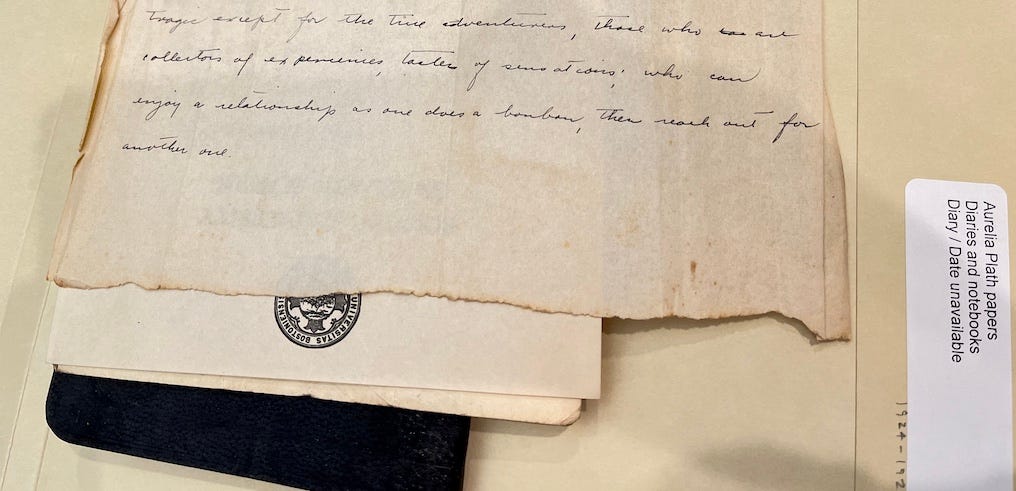 tragic except for the true adventurers, those who are
collectors of experiences, tasters of sensations; who can
enjoy a relationship as one does a bonbon, then reach out for
another one.
UNIVERSITAS BOSTONIENSIS
Aurelia Plath papers
Diaries and notebooks
Diary / Date unavailable
1924-192